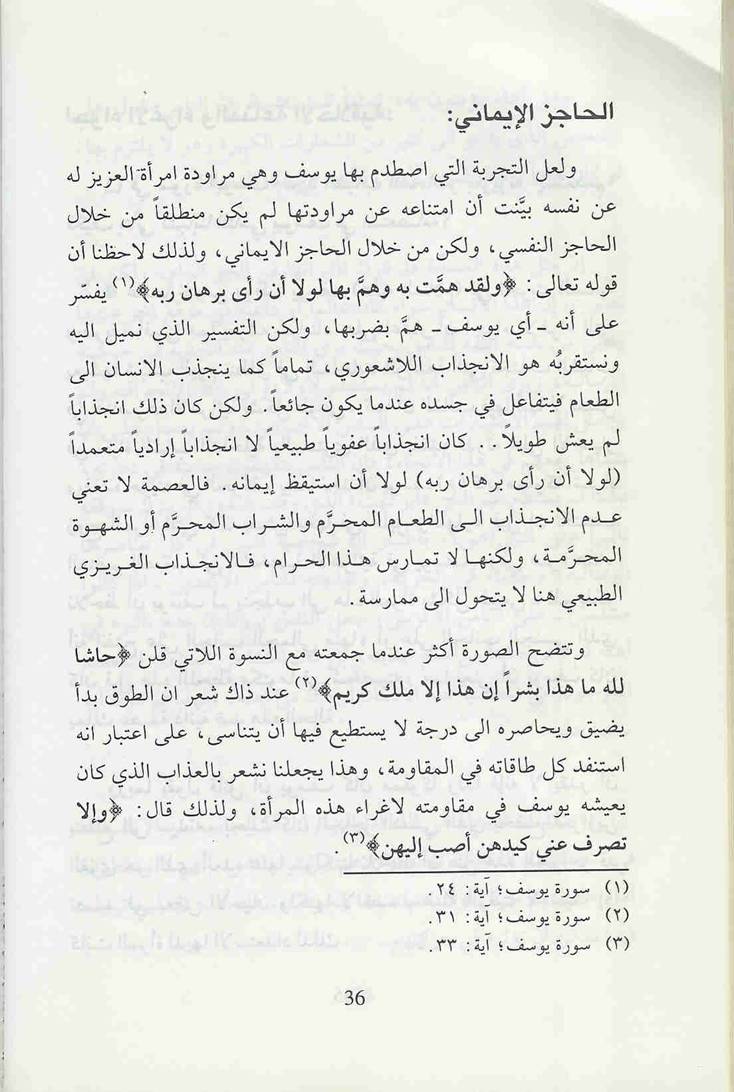 الحاجز الإيماني:
ولعل التجربة التي اصطدم بها يوسف وهي مراودة امرأة العزيز له
عن نفسه بيَّنت أن امتناعه عن مراودتها لم يكن منطلقاً من خلال
الحاجز النفسي، ولكن من خلال الحاجز الايماني، ولذلك لاحظنا أن
قوله تعالى: ﴿ولقد همَّت به وهمَّ بها لولا أن رأى برهان ربه﴾(١) يفسّر
على أنه - أي يوسف - همَّ بضربها، ولكن التفسير الذي نميل اليه
ونستقربُه هو الانجذاب اللاشعوري، تماماً كما ينجذب الانسان الى
الطعام فيتفاعل في جسده عندما يكون جائعاً. ولكن كان ذلك انجذاباً
لم يعش طويلاً.. كان انجذاباً عفوياً طبيعياً لا انجذاباً إرادياً متعمداً
(لولا أن رأى برهان ربه) لولا أن استيقظ إيمانه. فالعصمة لا تعني
عدم الانجذاب الى الطعام المحرَّم والشراب المحرَّم أو الشهوة
المحرَّمة، ولكنها لا تمارس هذا الحرام، فالانجذاب الغريزي
الطبيعي هنا لا يتحول الى ممارسة.
وتتضح الصورة أكثر عندما جمعته مع النسوة اللاتي قلن ﴿حاشا
لله ما هذا بشراً إن هذا إلا ملك كريم﴾(٢) عند ذاك شعر ان الطوق بدأ
يضيق ويحاصره الى درجة لا يستطيع فيها أن يتناسى، على اعتبار انه
استنفد كل طاقاته في المقاومة، وهذا يجعلنا نشعر بالعذاب الذي كان
يعيشه يوسف في مقاومته لاغراء هذه المرأة، ولذلك قال: ﴿وإلا
تصرف عني كيدهن أصب إليهن﴾(٣).
(١) سورة يوسف؛ آية: ٢٤.
(٢) سورة يوسف؛ آية: ٣١.
(٣) سورة يوسف؛ آية: ٣٣.
36